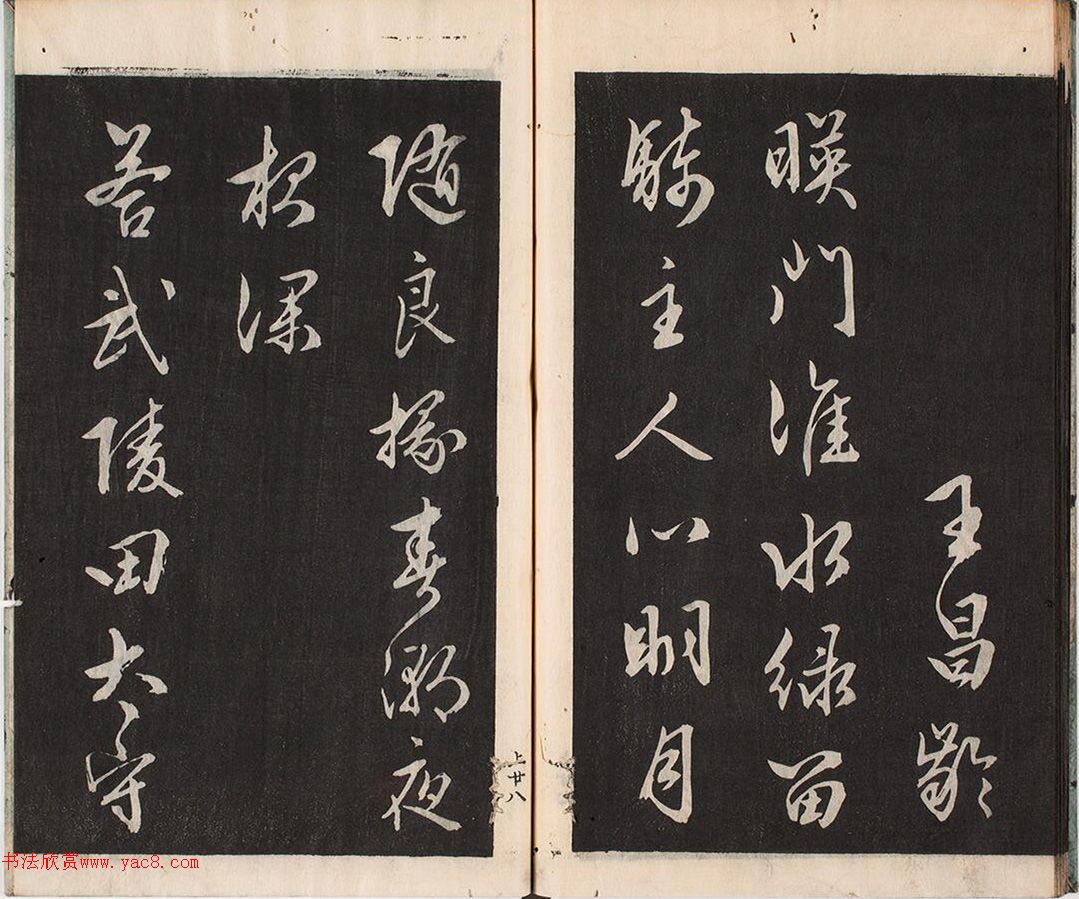 王昌齡
暎門淮水綠留
騎主人心明月
隨良掾春潮夜
夜深
荅武陵田太守
上廿八
书法欣赏www.yac8.com